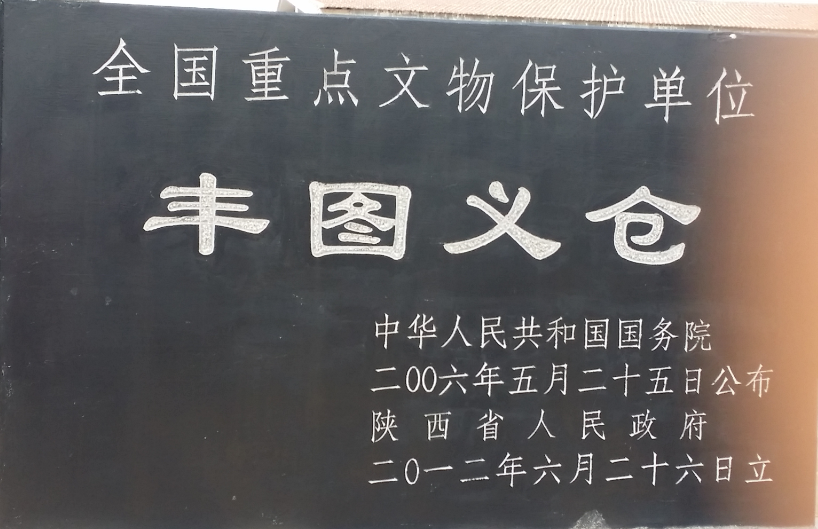 全国重点文物保护单位
丰图义仓
中华人民共和国国务院
二00六年五月二十五日公布
陕西省人民政府
二0一二年六月二十六日立